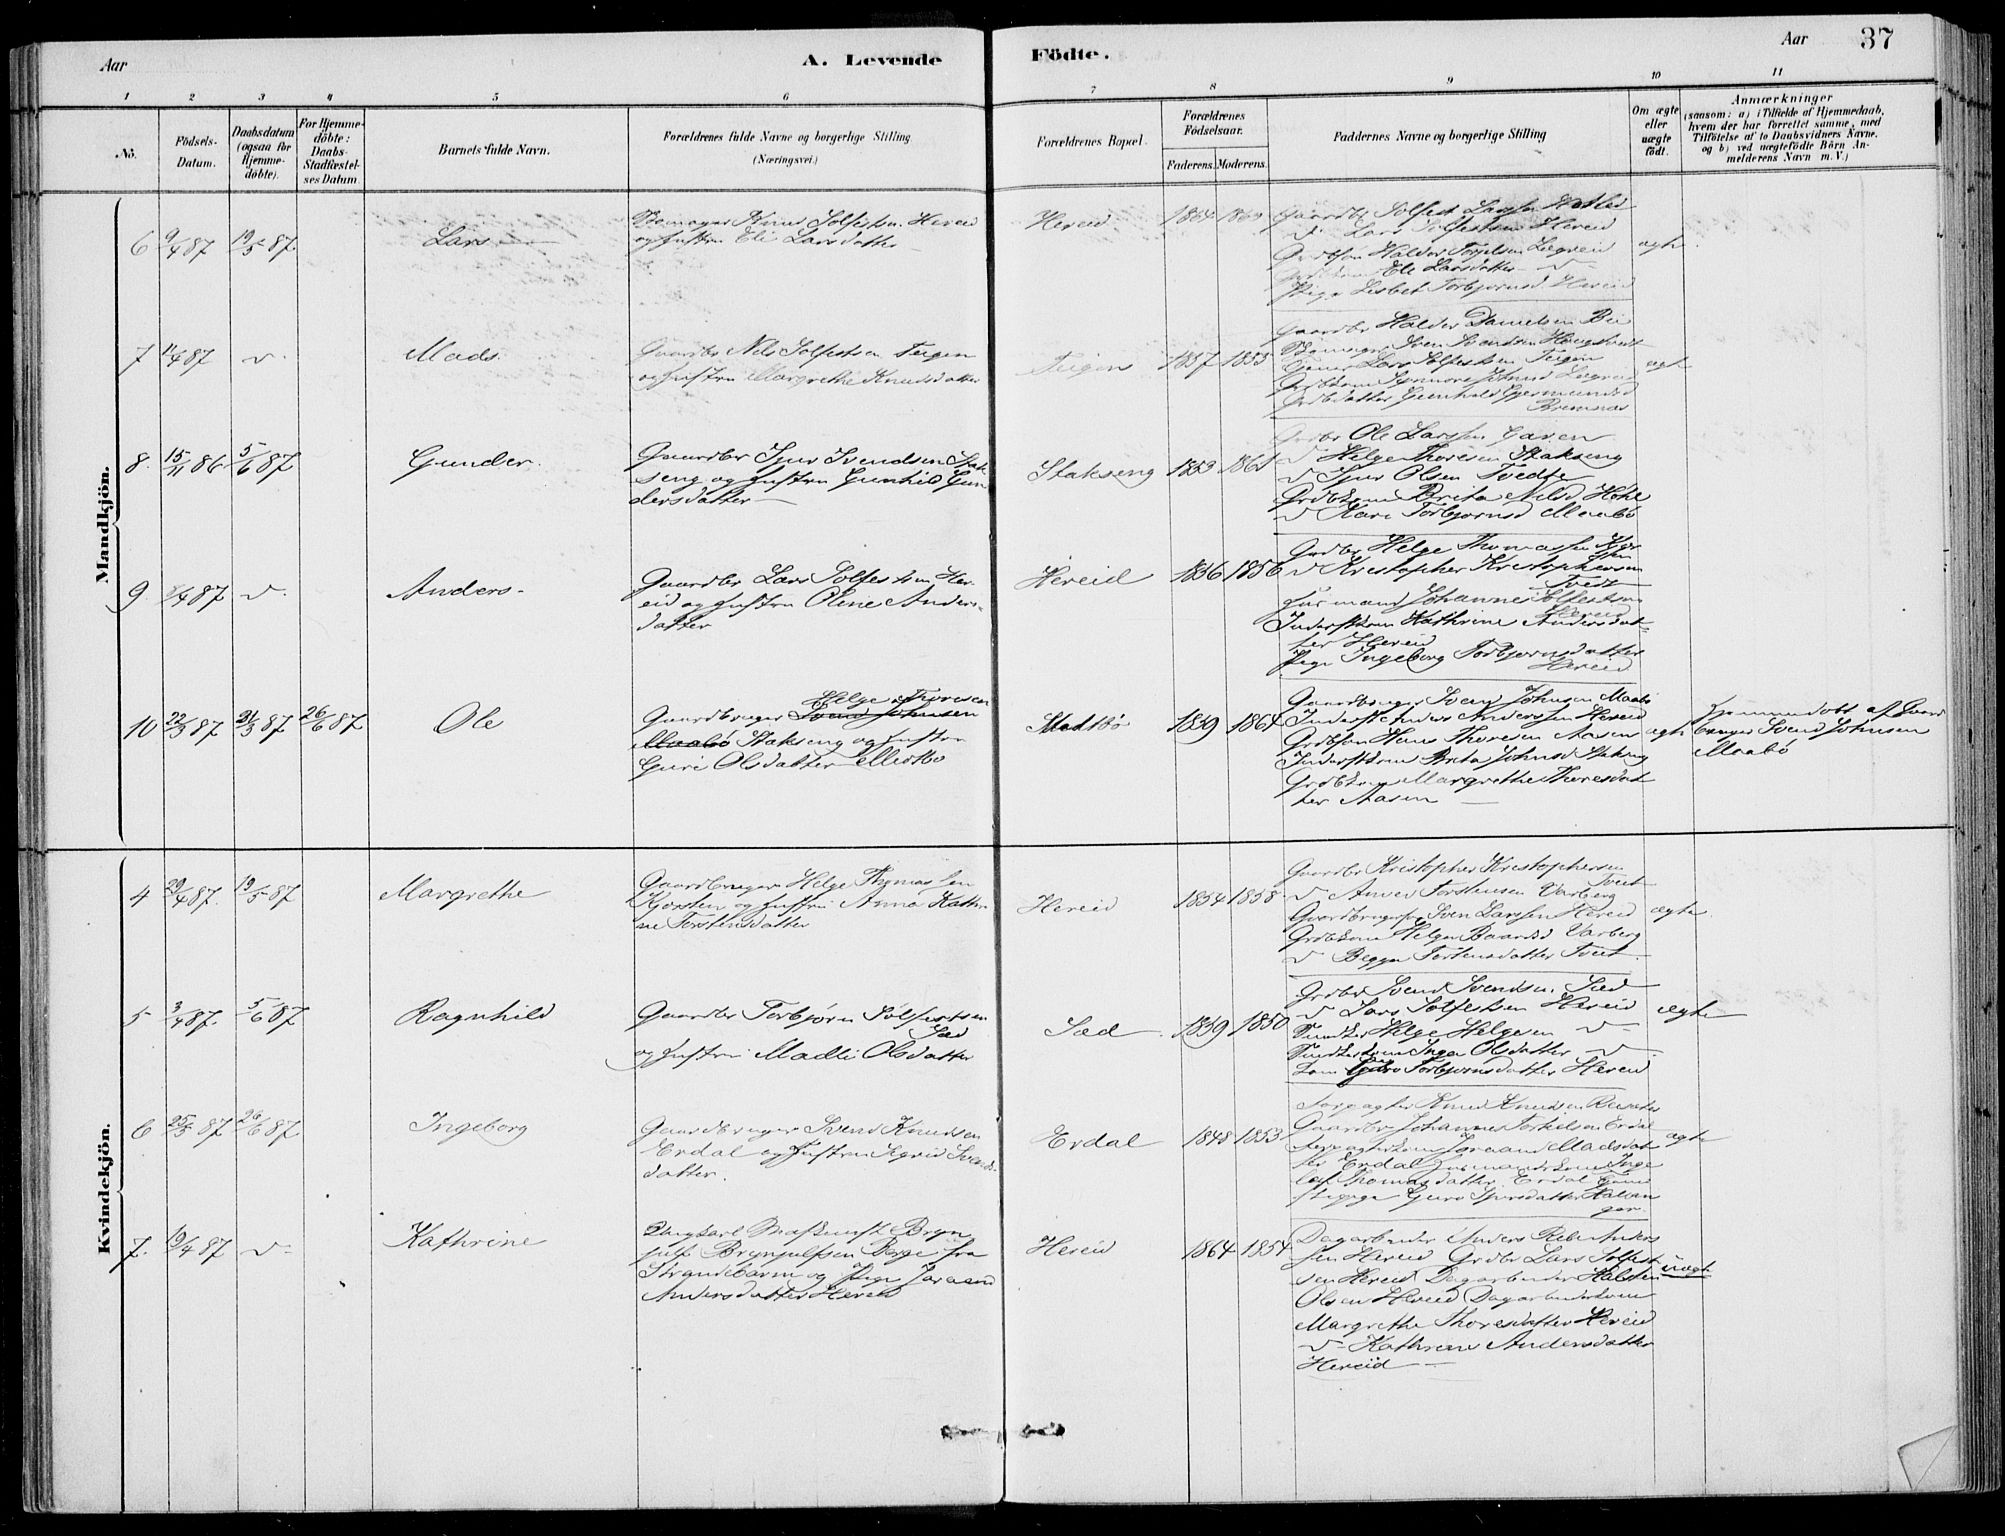 Aar
A. Levende Födte.
Aar 37
1 2 3 4 5 6 7 8 9 10 11
No.
Födsels-Datum.
Daabsdatum (ogsaa for Hjemmedöbte).
For Hjemmedöbte: Daabs-Stadfæstelses Datum
Barnets fulde Navn.
Forældrenes fulde Navne og borgerlige Stilling (Næringsvei.)
Forældrenes Bopæl.
Forældrenes Födselsaar.
Faderens. Moderens.
Faddernes Navne og borgerlige Stilling
Om ægte eller uægte födt.
Anmærkninger
(saasom: a) i Tilfælde af Hjemmedaab, hvem der har forrettet samme, med Tilföielse af to Daabsvidners Navne. og b) ved uægtefödte Börn Anmelderens Navn m. V.)
Mandkjön.
6 9/4 87 19/5 87. Lars
Knud Solfestsen Hereid
og hustru Eli Larsdatter
Hereid
Gaardbr Solfest Larssen
Lars Solfestsen Hereid
Halder Torjelsen Lægreid
Eli Larsdatter
Pige Lisbet Torbjørnsd. Hereid
ægte
7 11/4 87 v. Mads
Gaardbr Nils Solfestsen Teigen
og hustru Margrethe Knudsdatter
Teigen 1857 1855
Gaardbr Halder Danielsen Bu
Lars Solfestsen Teigen
ægt
8. 15/11 86 5/6 87 Gunder.
Gaardbr Sjur Svendsen Stak-
seng og hustru Gunhild Gun
dersdatter
Stakseng 1853 1861
Grdbr Ole Larssen Garen
v Helge Thoresen Stakseng
v Sjur Olsen Tvedte
Grdbkone Brita Nilsd Høhl
v Kari Torbjørnsd Maabø
9 /4 87 v. Anders
Gaardbr Lars Solfestsen Her-
eid og hustru Oline Anders-
datter
Hereid 1856 1856
Grdbr Helge Thomassen
v Kristopher Kristophersen
Tvedt
Husmand Johannes Solfestsen
Hereid
Inderstkone Kathrine Andersdat-
ter Hereid
Pige Ingeborg Torbjørnsdatter
Hereid
10 22/3 87 31/3 87 26/6 87 Ole
Helge Thoresen
Gaardbruger Svend Johnsen
Maabø Stakseng og hustru
Guri Olsdatter
1859 1864
Gaardbruger Svend Johnsen Maabø
Inderst Anders Anderssen Hereid
Grdbsøn Hans Thoresen Aasen
Inderstkone Brita Johnsd Stakseng
Grdbkone Margrethe Thoresdat
ter Aasen
ægte
Hjemmedøbt af Gaard
bruger Svend Johnsen
Maabø
Kvindekjön.
4 29/4 87. 19/5 87 Margrethe
Gaardbruger Helge Thomassen
og hustru Anna Kathri
ne Torstensdatter
Hereid 1854 1858
Gaardbr Kristopher Kristophersen
Tveit
v Amund Torstensen Varberg
Sven Larssen Hereid
Grdbkone Helga Baardsd Varberg
v Begga Torstensdatter Tveit
ægte.
5 3/4 87. 5/6 87 Ragnhild
Gaardbr Torbjørn Solfestsen
Sæd
og hustru Madli Olsdatter
Sæd 1859 1850
Grdbr Svend Svendsen Sæd
v Lars Solfestsen Hereid
Helge Helgesen v
Inga Olsdatter v
Torbjørnsdatter Hereid
ægte
6 25/5 87 26/6 87 Ingeborg
Gaardbruger Svend Knudsen
Erdal og hustru Sigrid Svends-
datter.
Erdal 1848 1853
Knud Knudsen
Gaardbr Johannes Torkelsen Erdal
Joraand Madsdat
ter Erdal husmandskone Inge
Thomasdatter Erdal
Guro Sjursdatter
ægte
7. 19/4 87 v. Kathrine
Ungkarl Bryn
julf Brynjulfsen Berge fra
Strandebarm og Pige Joraand
Andersdatter Hereid
Hereid 1864 1854
Dagarbeider Anders Anders
sen Hereid Grdbr Lars Solfest
sen Hereid Dagarbeider Halsten
Olsen Hereid Dagarbeiderkone
Margrethe Thoresdatter Hereid
v Kathrine Andersdatter
Hereid
uægte